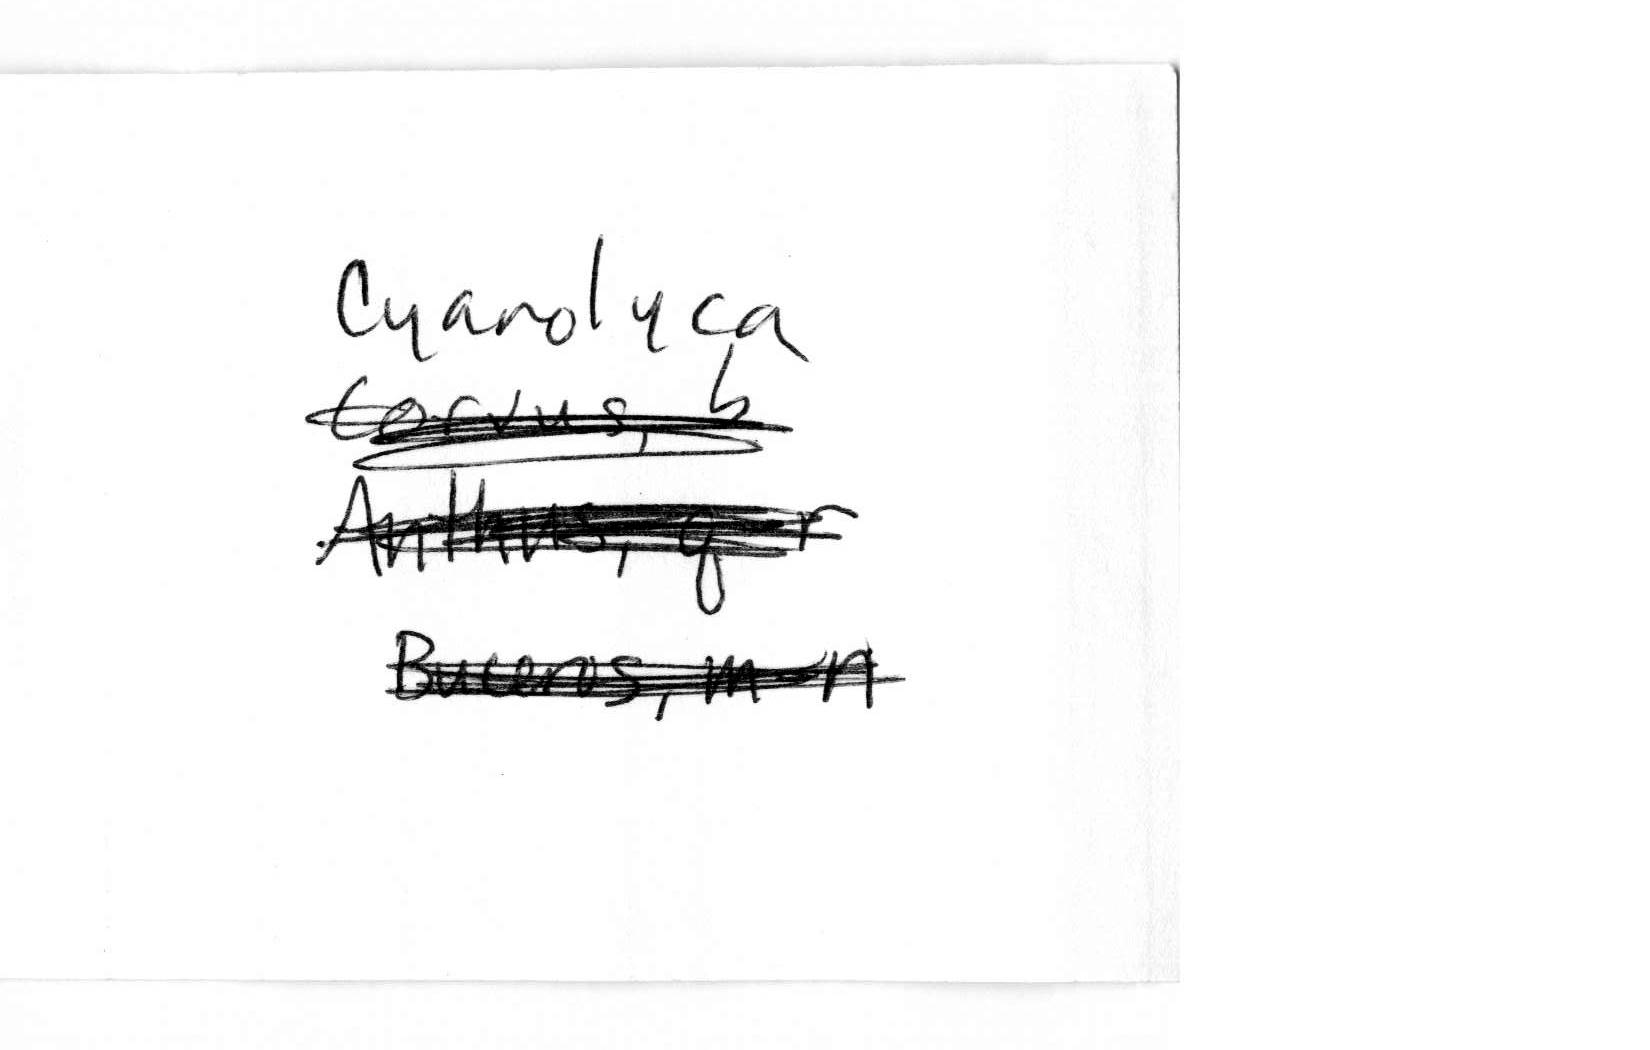 Cyanolyca
Corvus, b
Anthus, g-r
Buceros, m-n